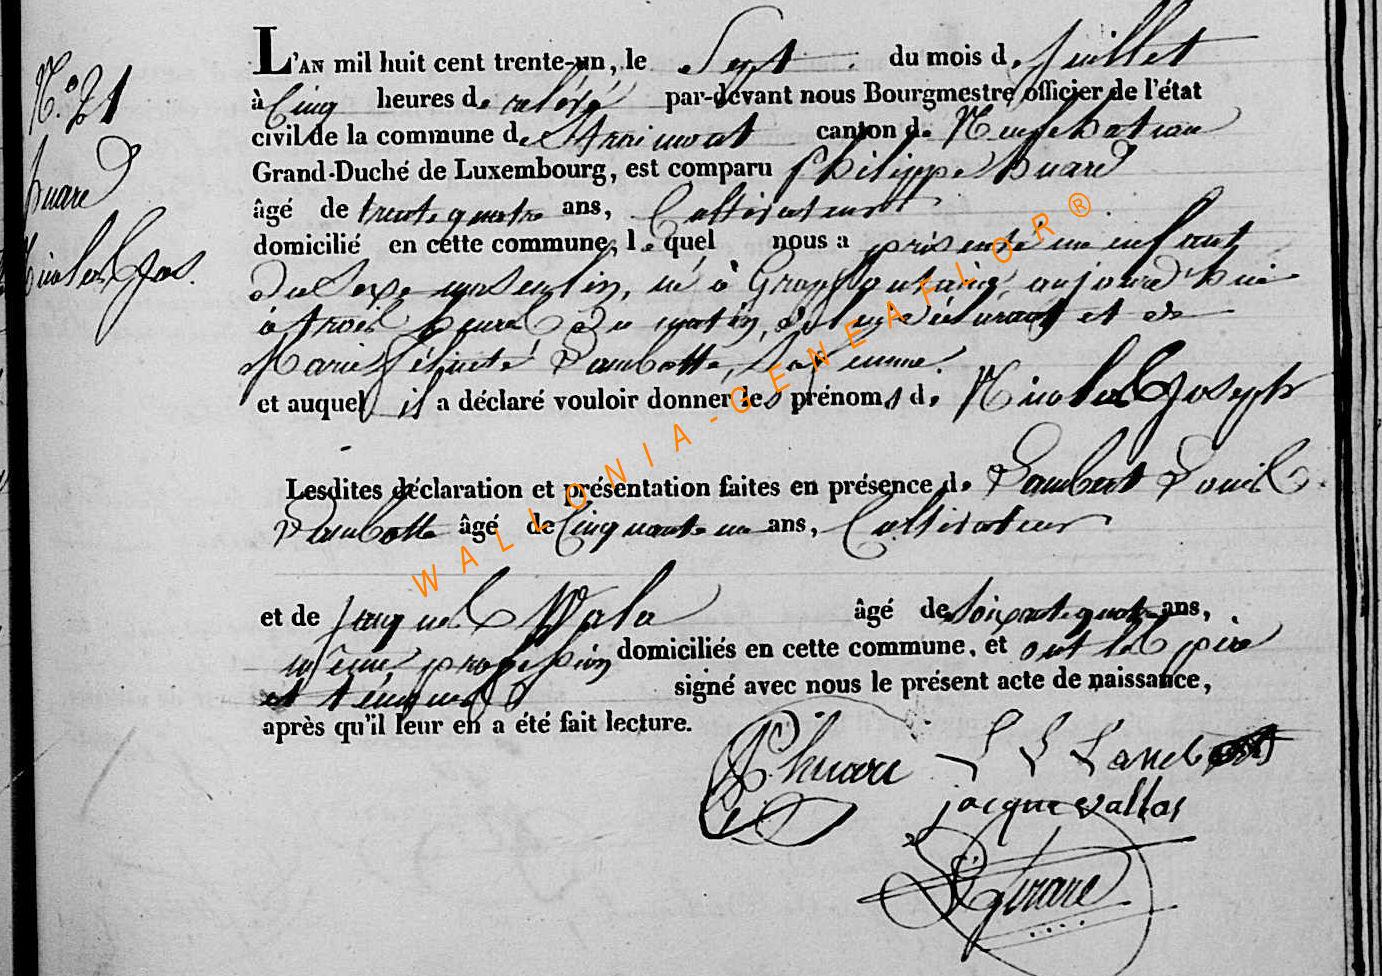 N.° 21
huard
Nicolas Jos.
L'AN mil huit cent trente-un, le Sept du mois de Juillet
à Cinq heures de relevé par-devant nous Bourgmestre officier de l'état
civil de la commune de Straimont canton de Neufchateau
Grand-Duché de Luxembourg, est comparu Philippe huard
âgé de trente quatre ans, Cultivateur
domicilié en cette commune, lequel nous a présenté un enfant
du Sexe masculin, né à Grapfontaine, aujourd'hui
à trois heures du matin, de lui déclarant et de
Marie Félicité Lambotte, Sa femme.
et auquel il a déclaré vouloir donner les prénoms de Nicolas Joseph
Lesdites déclaration et présentation faites en présence de Lambert Louis
Lambotte âgé de Cinquante un ans, Cultivateur
et de Jacques Wala âgé de Soixante quatre ans,
même profession domiciliés en cette commune, et ont les père
et témoins signé avec nous le présent acte de naissance,
après qu'il leur en a été fait lecture.
Ph huard L L Lambott
jacque vallas
Girard
WALLONIA-GENEAFLOR®